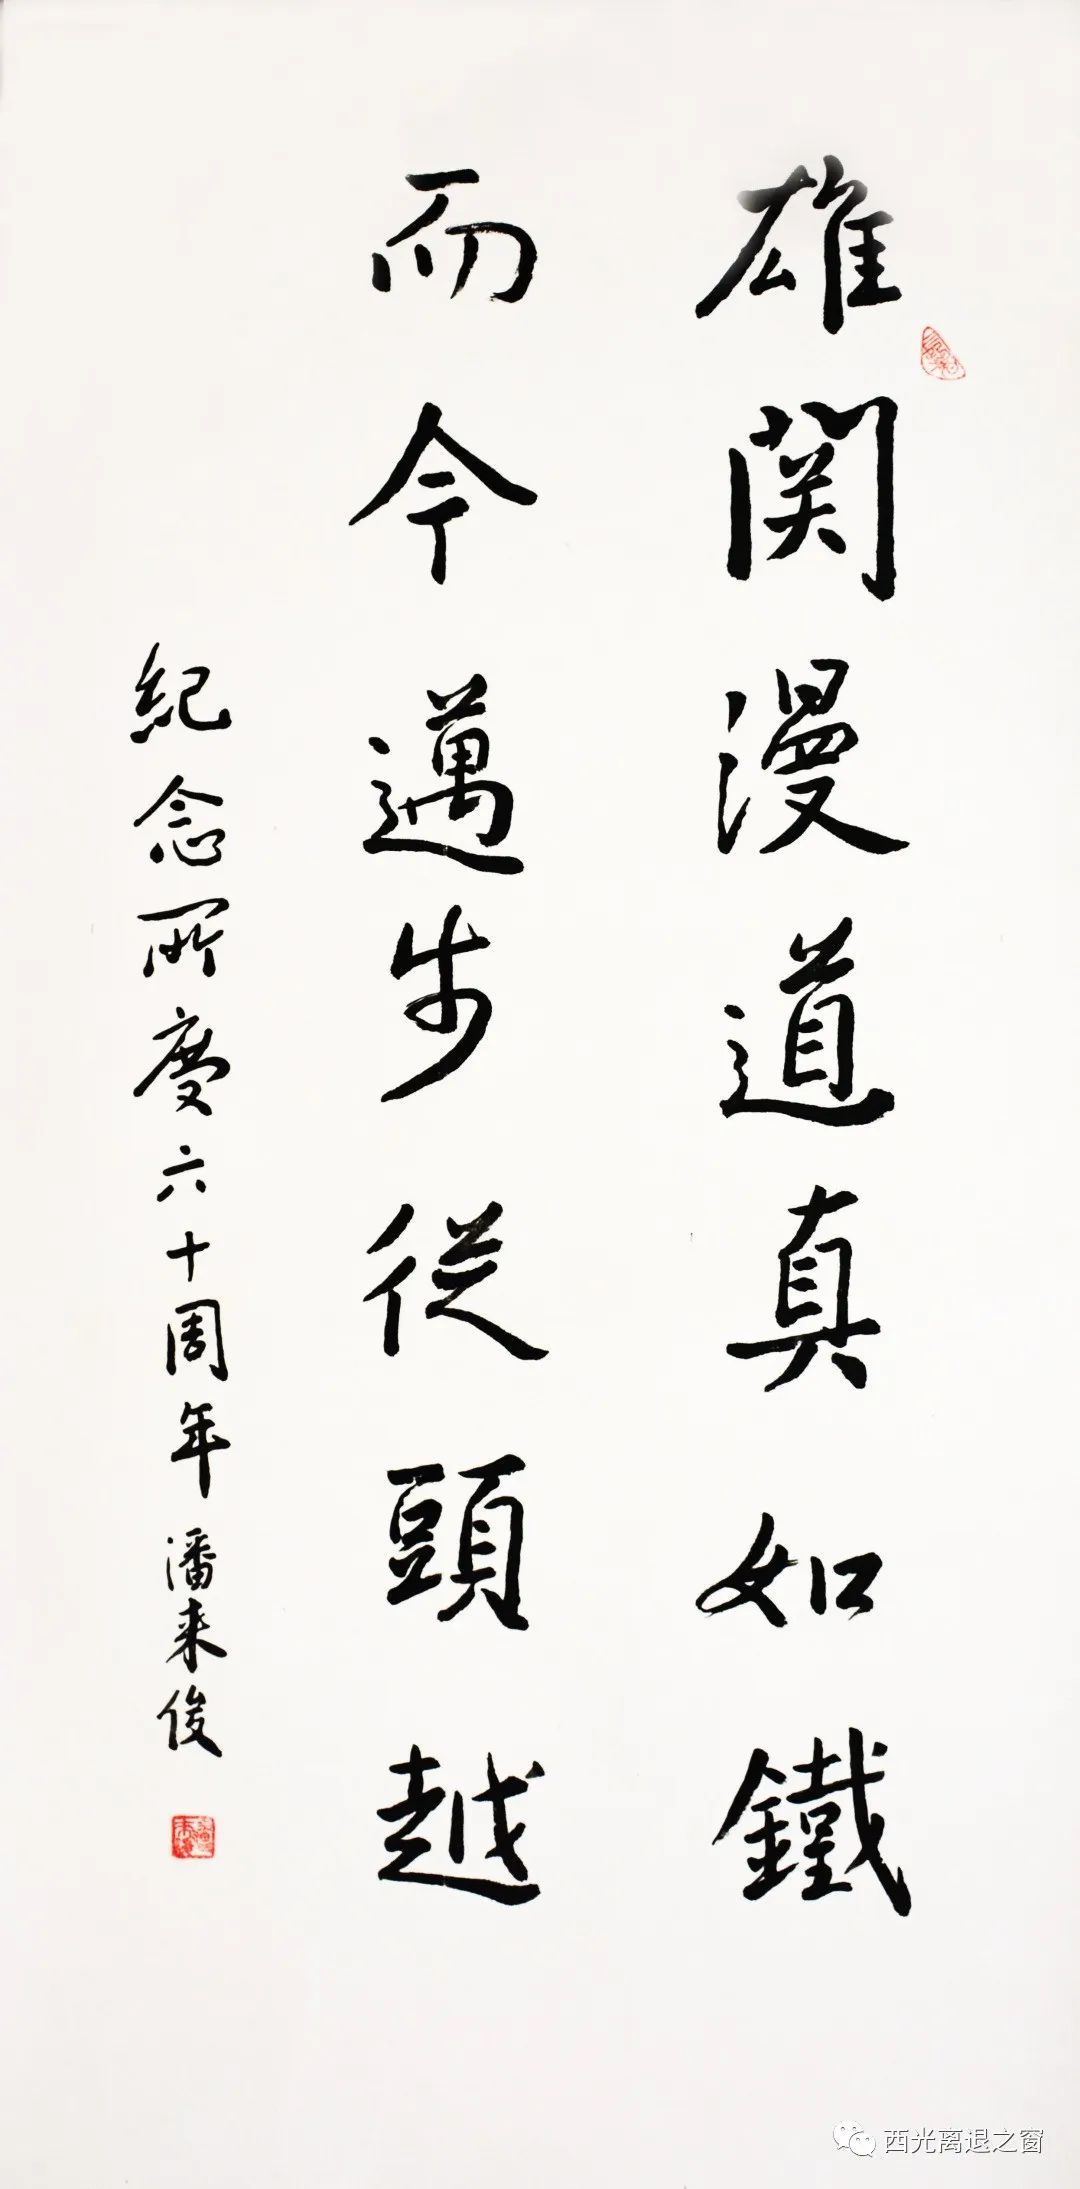 雄関漫道真如鐵
而今邁步従頭越
紀念所慶六十周年 潘来俊
西光离退之窗